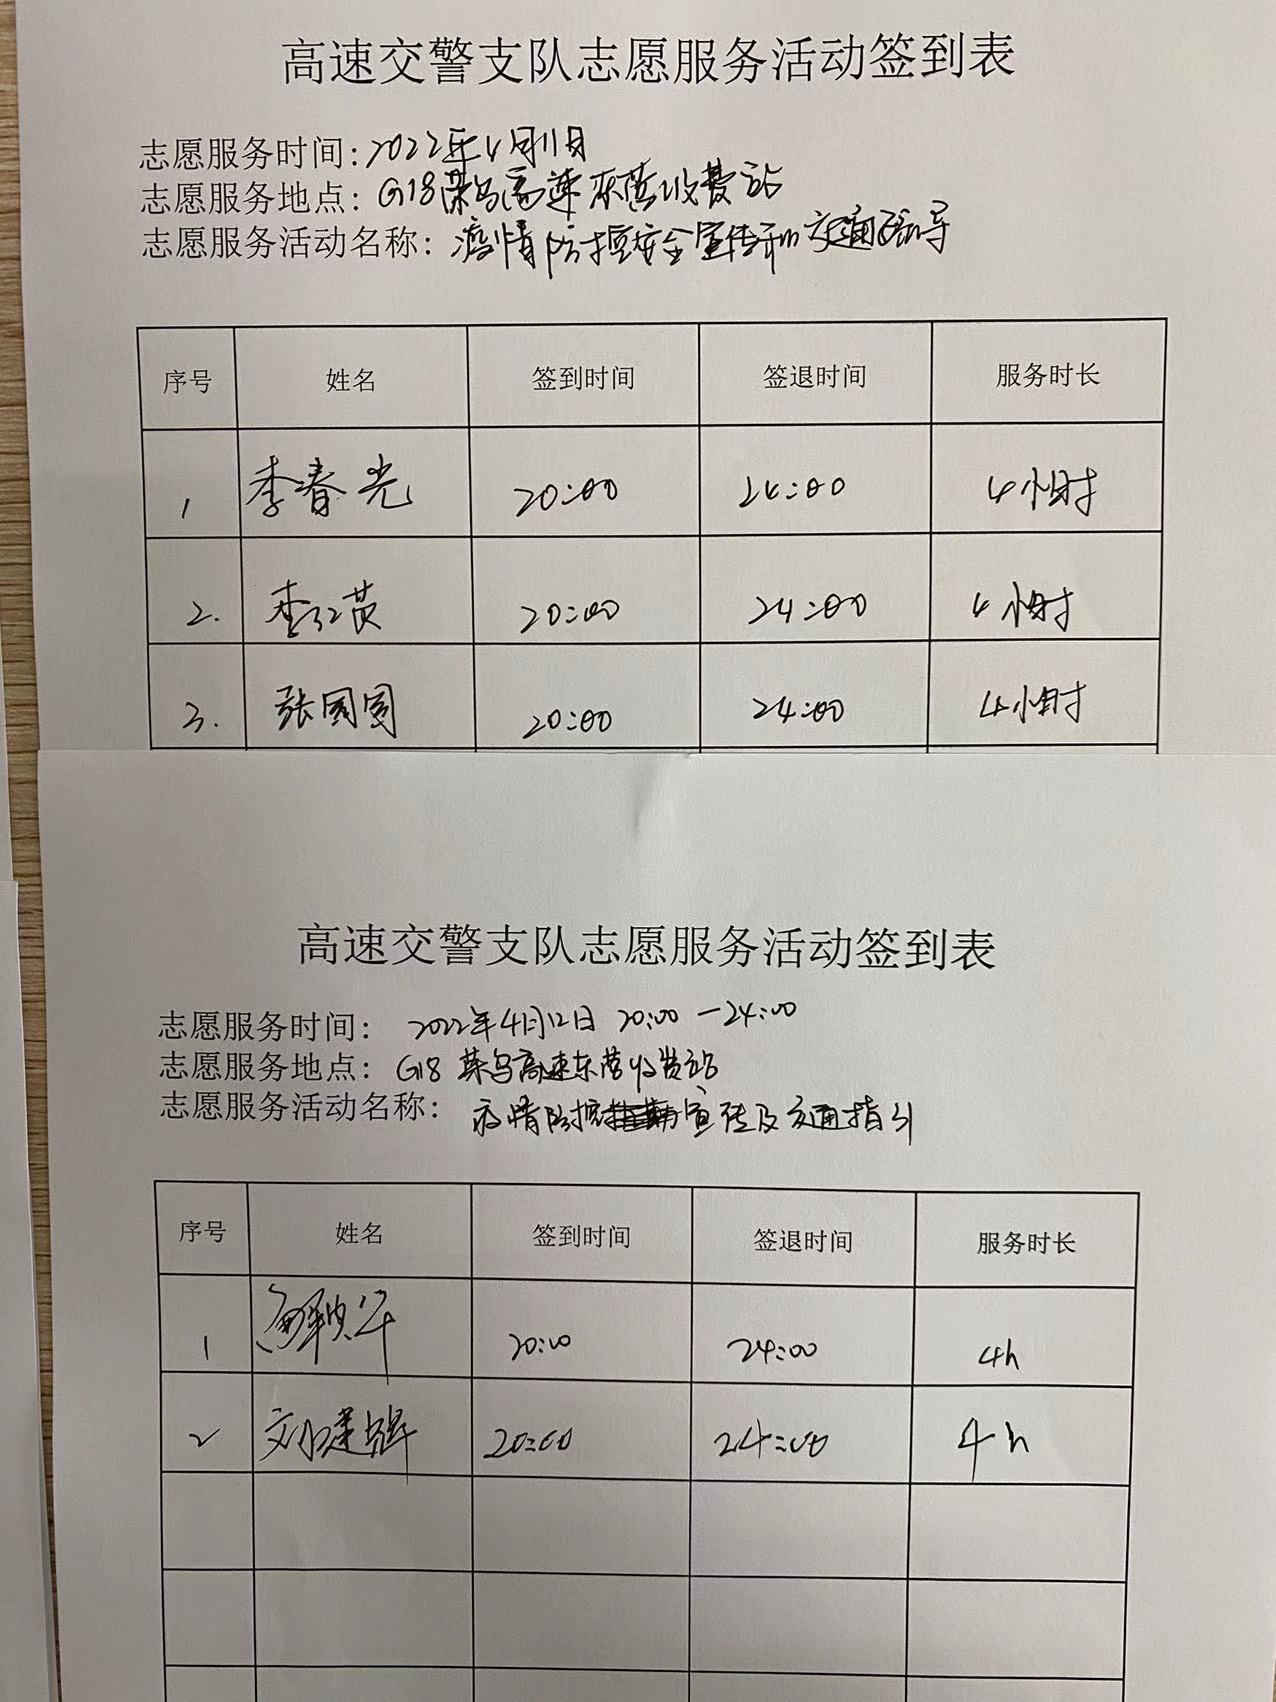 高速交警支队志愿服务活动签到表
志愿服务时间:2022年4月11日
志愿服务地点:G18荣乌高速东营收费站
志愿服务活动名称:疫情防控安全宣传和交通疏导
序号 姓名 签到时间 签退时间 服务时长
1 李春光 20:00 24:00 4小时
2. 李红英 20:00 24:00 4小时
3. 张圆圆 20:00 24:00 4小时
高速交警支队志愿服务活动签到表
志愿服务时间: 2022年4月12日 20:00-24:00
志愿服务地点: G18 荣乌高速东营收费站
志愿服务活动名称: 疫情防控宣传及交通指引
序号 姓名 签到时间 签退时间 服务时长
1 20:00 24:00 4h
2 20:00 24:00 4h